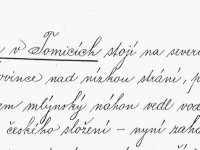 v Tomicích stojí na severu
ovince nad nízkou strání, p
em mlýnský náhon vedl vod
českého složení – nyní zaho